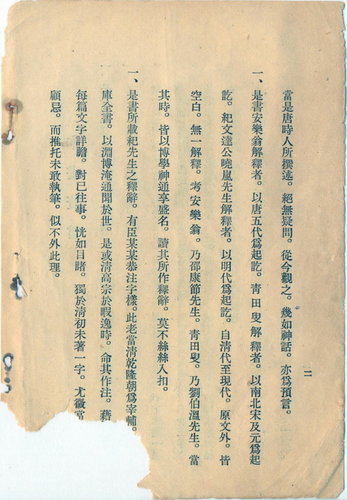 當是唐時人所撰述。絕無疑問。從今觀之。幾如神話。亦爲預言。
一、是書安樂翁解釋者。以唐五代爲起訖。靑田叟解釋者。以南北宋及元爲起
訖。紀文達公曉嵐先生解釋者。以明代爲起訖。自清代至現代。原文外。皆
空白。無一解釋。考安樂翁。乃邵康節先生。靑田叟。乃劉伯溫先生。當
其時。皆以博學神通享盛名。讀其所作釋辭。莫不絲絲入扣。
一、是書所載紀先生之釋辭。有臣某某恭注字樣。此老當清乾隆朝爲宰輔。
庫全書。以淵博淹通聞於世。是或清高宗於暇逸時。命其作注。藉
每篇文字詳論。對已往事。恍如目睹。獨於清初未著一字。尤徵當
顧忌。而推托未敢執筆。似不外此理。
二